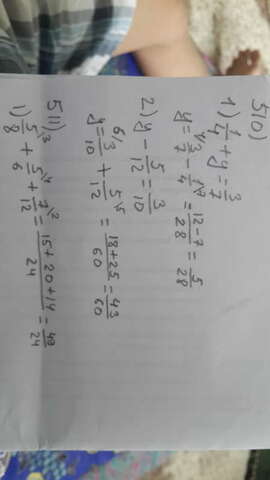 510)
1) 1/4 + y = 3/7
y = 3/7 - 1/4 = 12-7/28 = 5/28
2) y - 5/12 = 3/10
y = 3/10 + 5/12 = 18+25/60 = 43/60
511)
1) 5/8 + 5/6 + 7/12 = 15+20+14/24 = 49/24